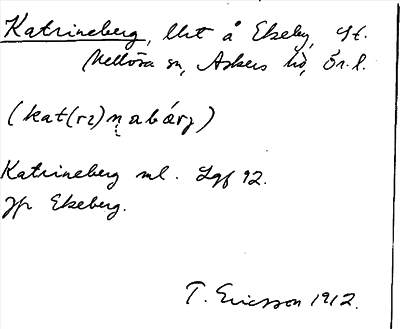 Katrineberg, lht å Ekeby, Gt.
Mellösa sn, Askers hd, Ör. l.
(kat(rı)n̥abárj)
Katrineberg ml. Lgf 92.
Jfr Ekeberg.
T. Ericsson 1912.